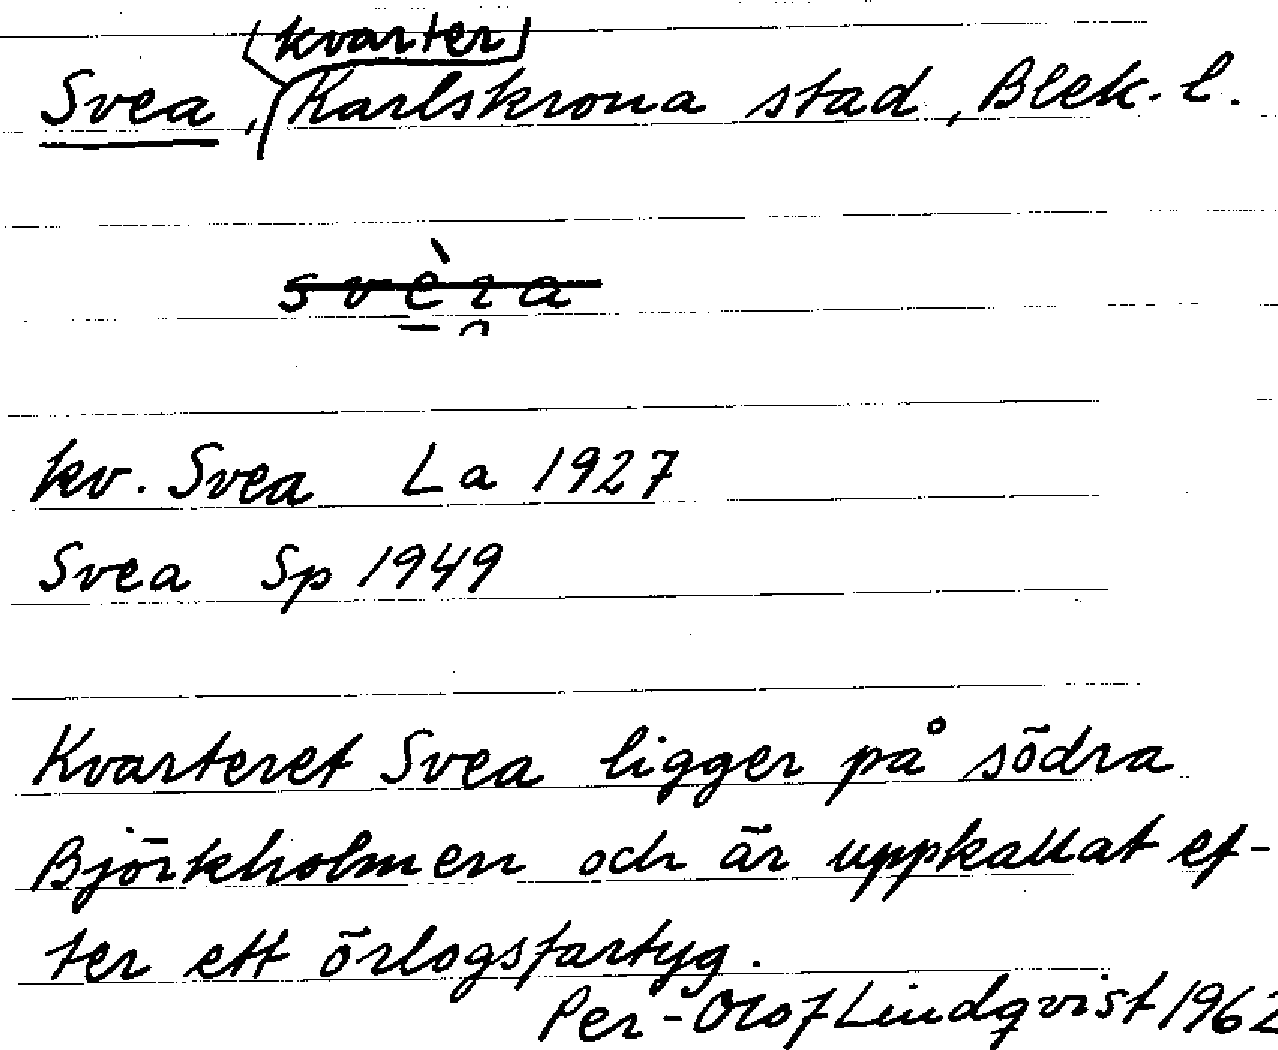 Svea, (kvarter) Karlskrona stad, Blek. l.
kv. Svea La 1927
Svea Sp 1949
Kvarteret Svea ligger på södra
Björkholmen och är uppkallat ef-
ter ett örlogsfartyg.
Per-Olof Lindqvist 1962